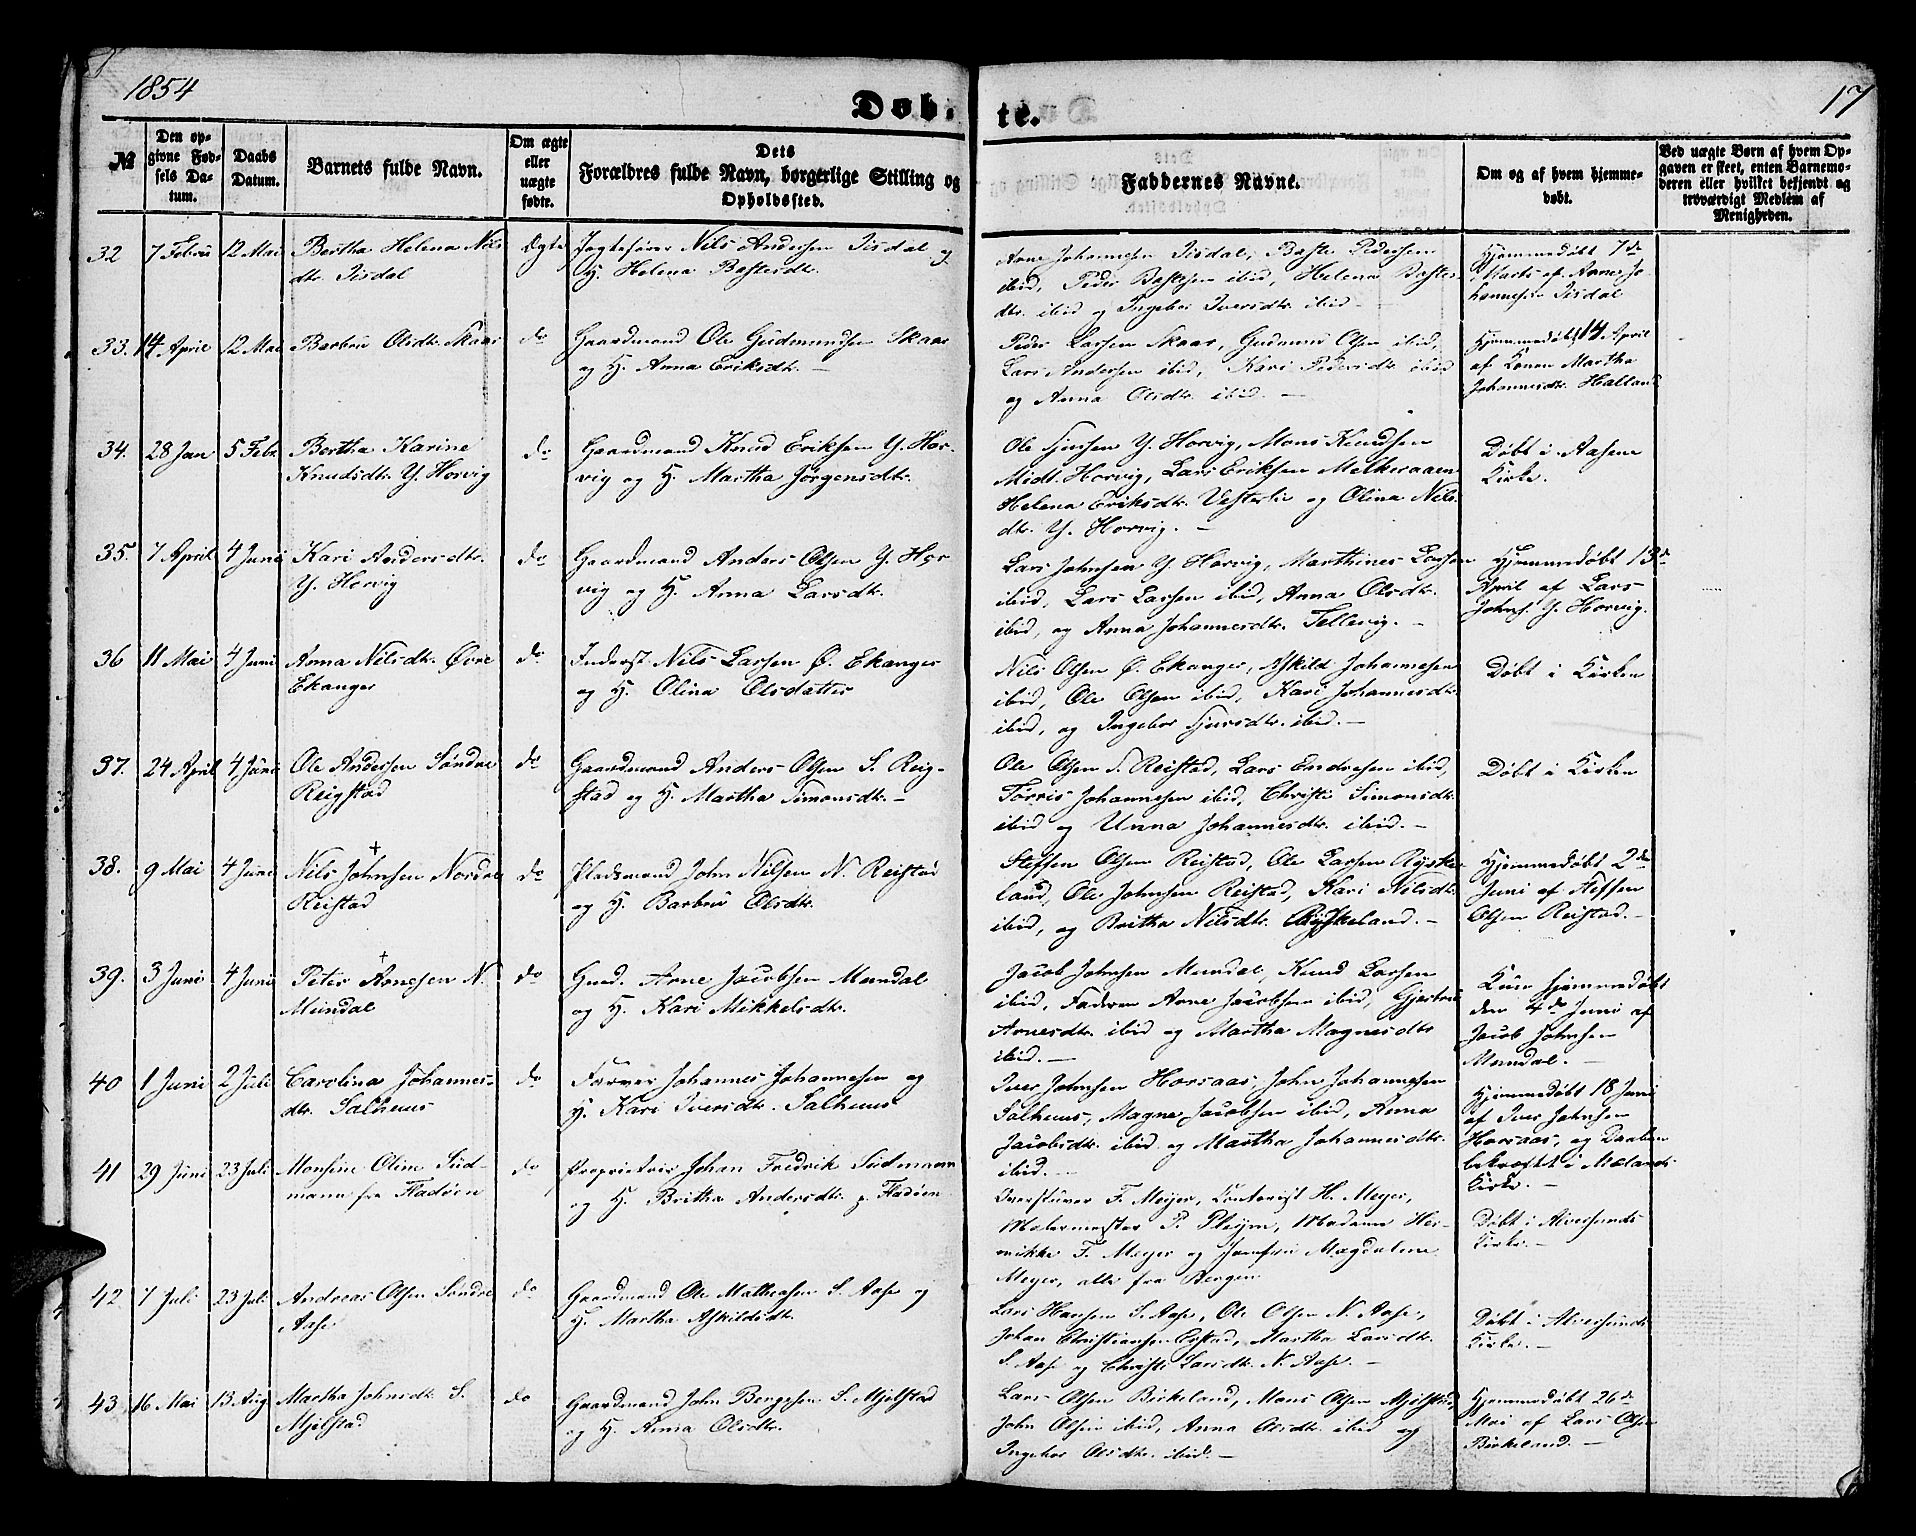 1854
Døb-
te.
17
№
Den op-
givne Fød-
sels Da-
tum.
Daabs
Datum.
Barnets fulde Navn.
Om ægte
eller
uægte
født.
Dets
Forældres fulde Navn, borgerlige Stilling og
Opholdssted.
Faddernes Navne.
Om og af hvem hjemme-
døbt.
Ved uægte Børn af hvem Op-
gaven er skeet, enten Barnemo-
deren eller hvilket bekjendt og
troværdigt Medlem af
Menigheden.
32 7 Februi 12 Mai Bertha Helena Nils
dtr. Iisdal
Ægte
Jægtefører Nils Andersen Iisdal og
H. Helena Bastesdtr.
Arne Johannesen Iisdal, Baste Pedersen
ibid, Peder Bastesen ibid, Helena Bastes-
dtr. ibid og Ingebor Iversdtr. ibid. —
Hjemmedøbt 7de
Marts af Arne Jo-
hannesen Iisdal
33. 14 April 12 Mai Barbru Olsdtr. Skaar
do
Gaardmand Ole Gudmundsen Skaar
og H. Anna Eriksdtr. —
Peder Larsen Skaar, Gudmund Olsen ibid,
Lars Andersen ibid, Kari Pedersdtr. ibid
og Anna Olsdtr. ibid. —
Hjemmedøbt 14 April
af Konen Martha
Johannesdtr. Halland
34. 28 Jan 5 Febr. Bertha Karine
Knudsdtr. Y. Horvig
do
Gaardmand Knud Eriksen Y. Hor-
vig og H. Martha Jørgensdtr.
Ole Sjursen Y. Horvig, Mons Knudsen
Midt. Horvig, Lars Eriksen Melkeraaen
Helena Eriksdtr. Vesterlie og Olina Nils
dtr. Y. Horvig. —
Døbt i Aasene
Kirke.
35. 7 April 4 Juni Kari Andersdtr.
Y. Horvig
do
Gaardmand Anders Olsen Y. Hor
vig og H. Anna Larsdtr.
Lars Johnsen Y. Horvig, Marthines Larsen
ibid, Lars Larsen ibid, Anna Olsdtr.
ibid, og Anna Johannesdtr. Tellevig. —
Hjemmedøbt 13de
April af Lars
Johns. Y. Horvig.
36 11 Mai 4 Juni Anna Nilsdtr. Øvre
Ekanger
do
Inderst Nils Larsen Ø. Ekanger
og H. Olina Olsdatter
Nils Olsen Ø. Ekanger, Askild Johannesen
ibid, Ole Olsen ibid, Kari Johannesdtr.
ibid, og Ingebor Sjursdtr. ibid. —
Døbt i Kirken
37. 24 April 4 Juni Ole Andersen Søndre
Reigstad
do
Gaardmand Anders Olsen S. Reig-
stad og H. Martha Simonsdtr. —
Ole Olsen S. Reistad, Lars Endresen ibid,
Tørris Johannesen ibid, Christi Simonsdtr.
ibid og Unna Johannesdtr. ibid. —
Døbt i Kirken
38. 9 Mai 4 Juni Nils Johnsen Nordre
Reistad
†
do
Pladsmand John Nilsen N. Reistad
og H. Barbru Olsdtr.
Steffen Olsen Reistad, Ole Larsen Ryske-
land, Ole Johnsen Reistad, Kari Nilsdtr.
ibid, og Britha Nilsdtr. Ryskeland. —
Hjemmedøbt 2den
Juni af Steffen
Olsen Reistad. —
39. 3 Juni 4 Juni Peter Arnesen N.
Mundal
†
do
Gmd. Arne Jacobsen Mundal
og H. Kari Mikkelsdtr.
Jacob Johnsen Mundal, Knud Larsen
ibid, Faderen Arne Jacobsen ibid, Gjertrud
Arnesdtr. ibid og Martha Magnesdtr
ibid. —
Kun hjemmedøbt
den 4de Juni af
Jacob Johnsen
Mundal. —
40 1 Juni 2 Juli Carolina Johannes-
dtr. Salhuus
do
Farver Johannes Johannesen og
H. Kari Iversdtr. Salhuus
Iver Johnsen Horsaas, John Johannesen
Salhuus, Magne Jacobsen ibid, Anna
Jacobsdtr. ibid og Martha Johannesdtr.
ibid. —
Hjemmedøbt 18 Juni
af Iver Johnsen
Horsaas, og Daaben
bekræftet i Mælands
Kirke. —
41 29 Juni 23 Juli Monsine Oline Sud-
mann fra Fladøen
do
Proprietair Johan Fredrik Sudmann
og H. Britha Andersdtr. p. Fladøen
F. Meyer, Contorist H. Meyer,
Malermester P. Madame Hen-
rikke F. Meyer og Jomfru Magdalene
Meyer, alle fra Bergen
Døbt i Alversunds
Kirke. —
42 7 Juli 23 Juli Andreas Olsen Søndre
Aase
do
Gaardmand Ole Mathiasen S. Aase og
H. Martha Askildsdtr.
Lars Hansen S. Aase, Ole Olsen N. Aase,
Johan Christiansen Erstad, Martha Larsdtr.
S. Aase og Christi Larsdtr. N. Aase. —
Døbt i Alversunds
Kirke. —
43 16 Mai 13 Aug Martha Johnsdtr. S.
Mjelstad
do
Gaardmand John Borgesen S. Mjelstad
og H. Anna Olsdtr.
Lars Olsen Birkeland, Mons Olsen Mjelstad,
John Olsen ibid, Anna Olsdtr. ibid og
Ingebor Olsdtr. ibid. —
Hjemmedøbt 26de
Mai af Lars Olsen
Birkeland. —